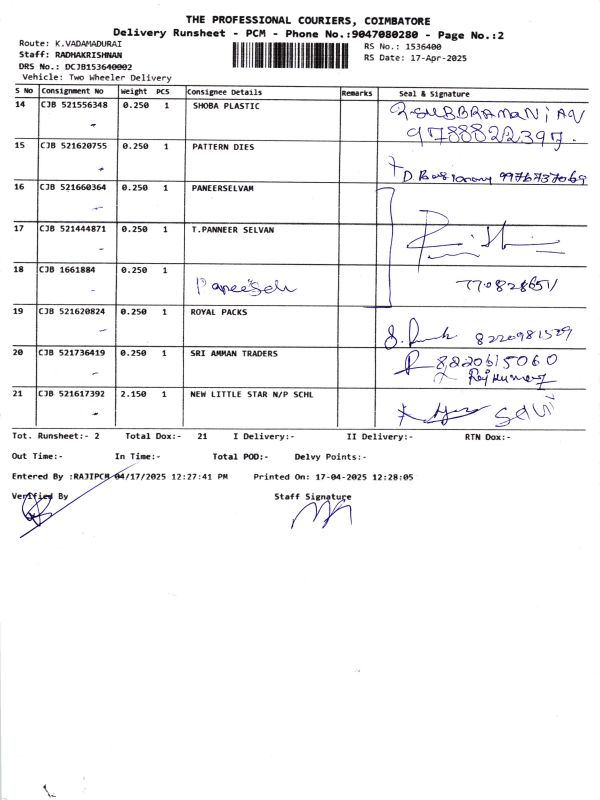 THE PROFESSIONAL COURIERS, COIMBATORE
Delivery Runsheet - PCM - Phone No.:9047080280 - Page No.:2
Route: K.VADAMADURAI
RS No.: 1536400
Staff: RADHAKRISHNAN
RS Date: 17-Apr-2025
DRS No.: DCJB153640002
Vehicle: Two Wheeler Delivery
S No Consignment No Weight PCS Consignee Details Remarks Seal & Signature
14 CJB 521556348 0.250 1 SHOBA PLASTIC
9788822397.
15 CJB 521620755 0.250 1 PATTERN DIES
9976737069
16 CJB 521660364 0.250 1 PANEERSELVAM
17 CJB 521444871 0.250 1 T.PANNEER SELVAN
18 CJB 1661884 0.250 1
19 CJB 521620824 0.250 1 ROYAL PACKS
20 CJB 521736419 0.250 1 SRI AMMAN TRADERS 8220615060
21 CJB 521617392 2.150 1 NEW LITTLE STAR N/P SCHL
Tot. Runsheet:- 2 Total Dox:- 21 I Delivery:- II Delivery:- RTN Dox:-
Out Time:- In Time:- Total POD:- Delvy Points:-
Entered By :RAJIPCM 04/17/2025 12:27:41 PM Printed On: 17-04-2025 12:28:05
Verified By Staff Signature